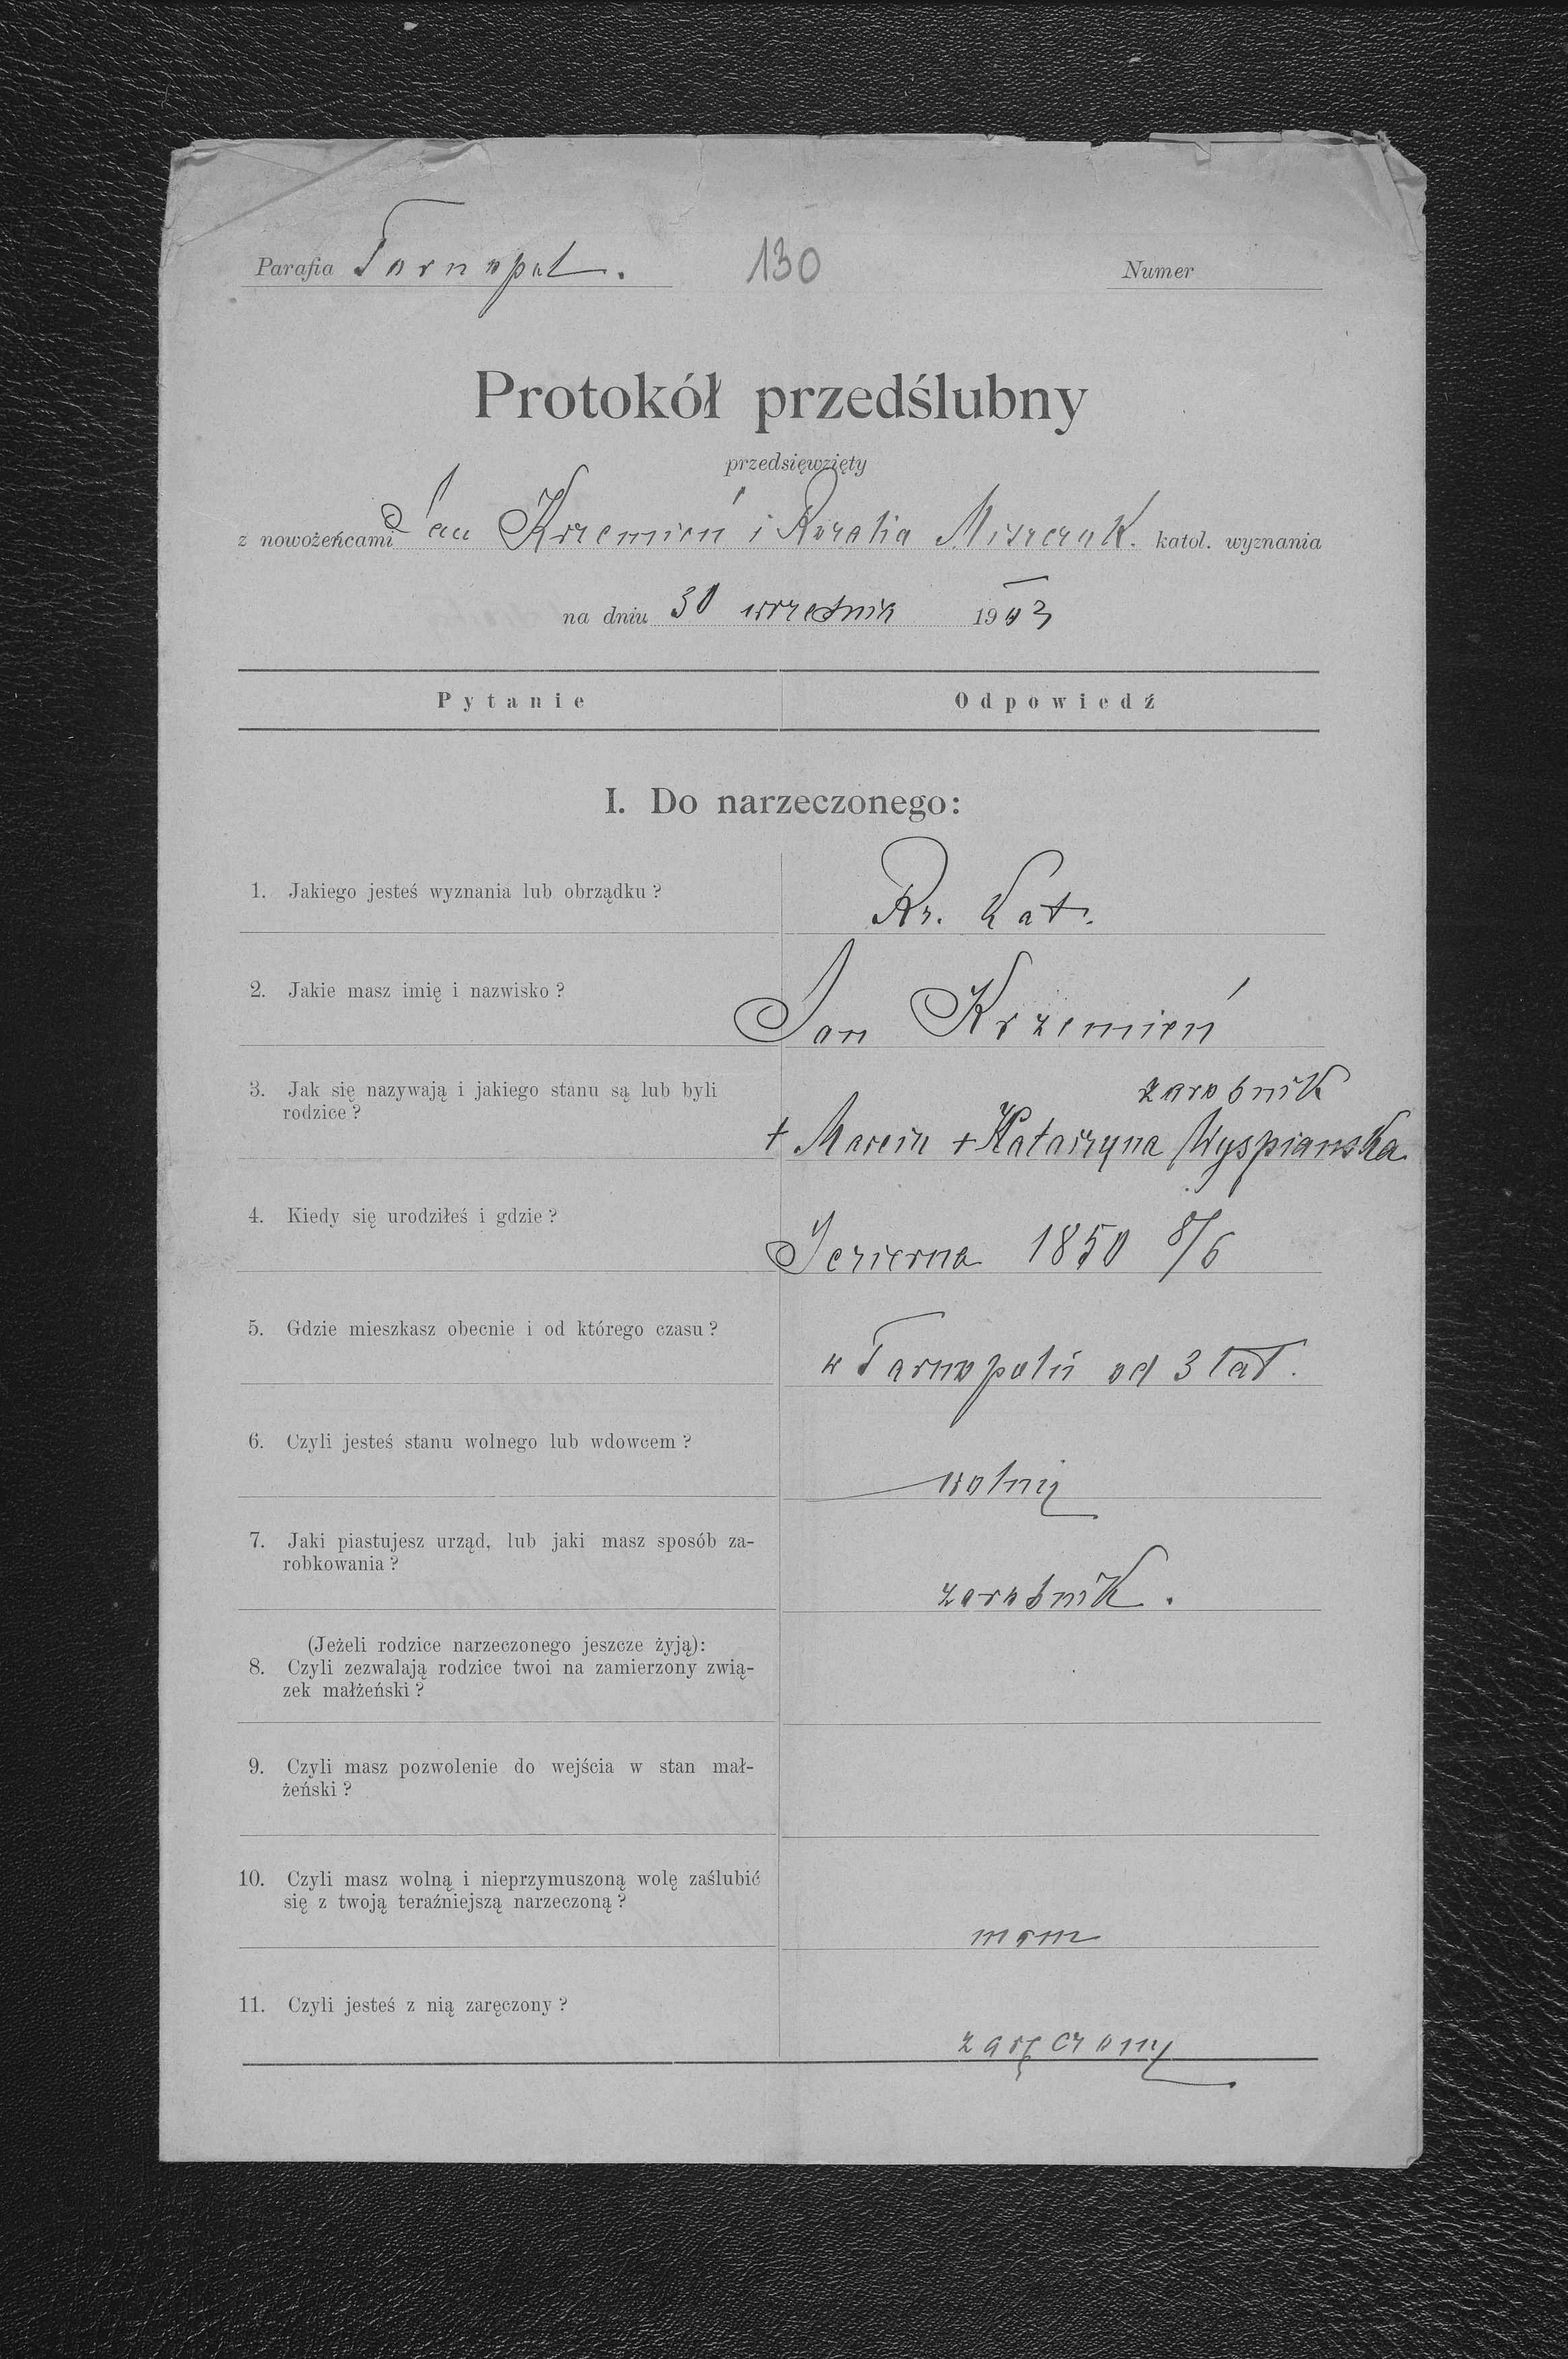 Parafia Tarnopol. 130 Numer
Protokół przedślubny
przedsięwzięty
z nowożeńcami Jan Krzemień i Rozalia Miszczuk. katol. wyznania
na dniu 30 wrzesnia 1903
Pytanie Odpowiedź
I. Do narzeczonego:
1. Jakiego jesteś wyznania lub obrządku?
Rz. Kat.
2. Jakie masz imię i nazwisko?
Jan Krzemień
3. Jak się nazywają i jakiego stanu są lub byli
rodzice?
zarobnik
+ Marcin + Katarzyna Wyspianska
4. Kiedy się urodziłeś i gdzie?
Jezierna 1850 8/6
5. Gdzie mieszkasz obecnie i od którego czasu?
w Tarnopolu od 3 lat.
6. Czyli jesteś stanu wolnego lub wdowcem?
wolny
7. Jaki piastujesz urząd, lub jaki masz sposób za-
robkowania?
zarobnik.
(Jeżeli rodzice narzeczonego jeszcze żyją):
8. Czyli zezwalają rodzice twoi na zamierzony zwią-
zek małżeński?
9. Czyli masz pozwolenie do wejścia w stan mał-
żeński?
10. Czyli masz wolną i nieprzymuszoną wolę zaślubić
się z twoją teraźniejszą narzeczoną?
mam
11. Czyli jesteś z nią zaręczony?
zaręczony